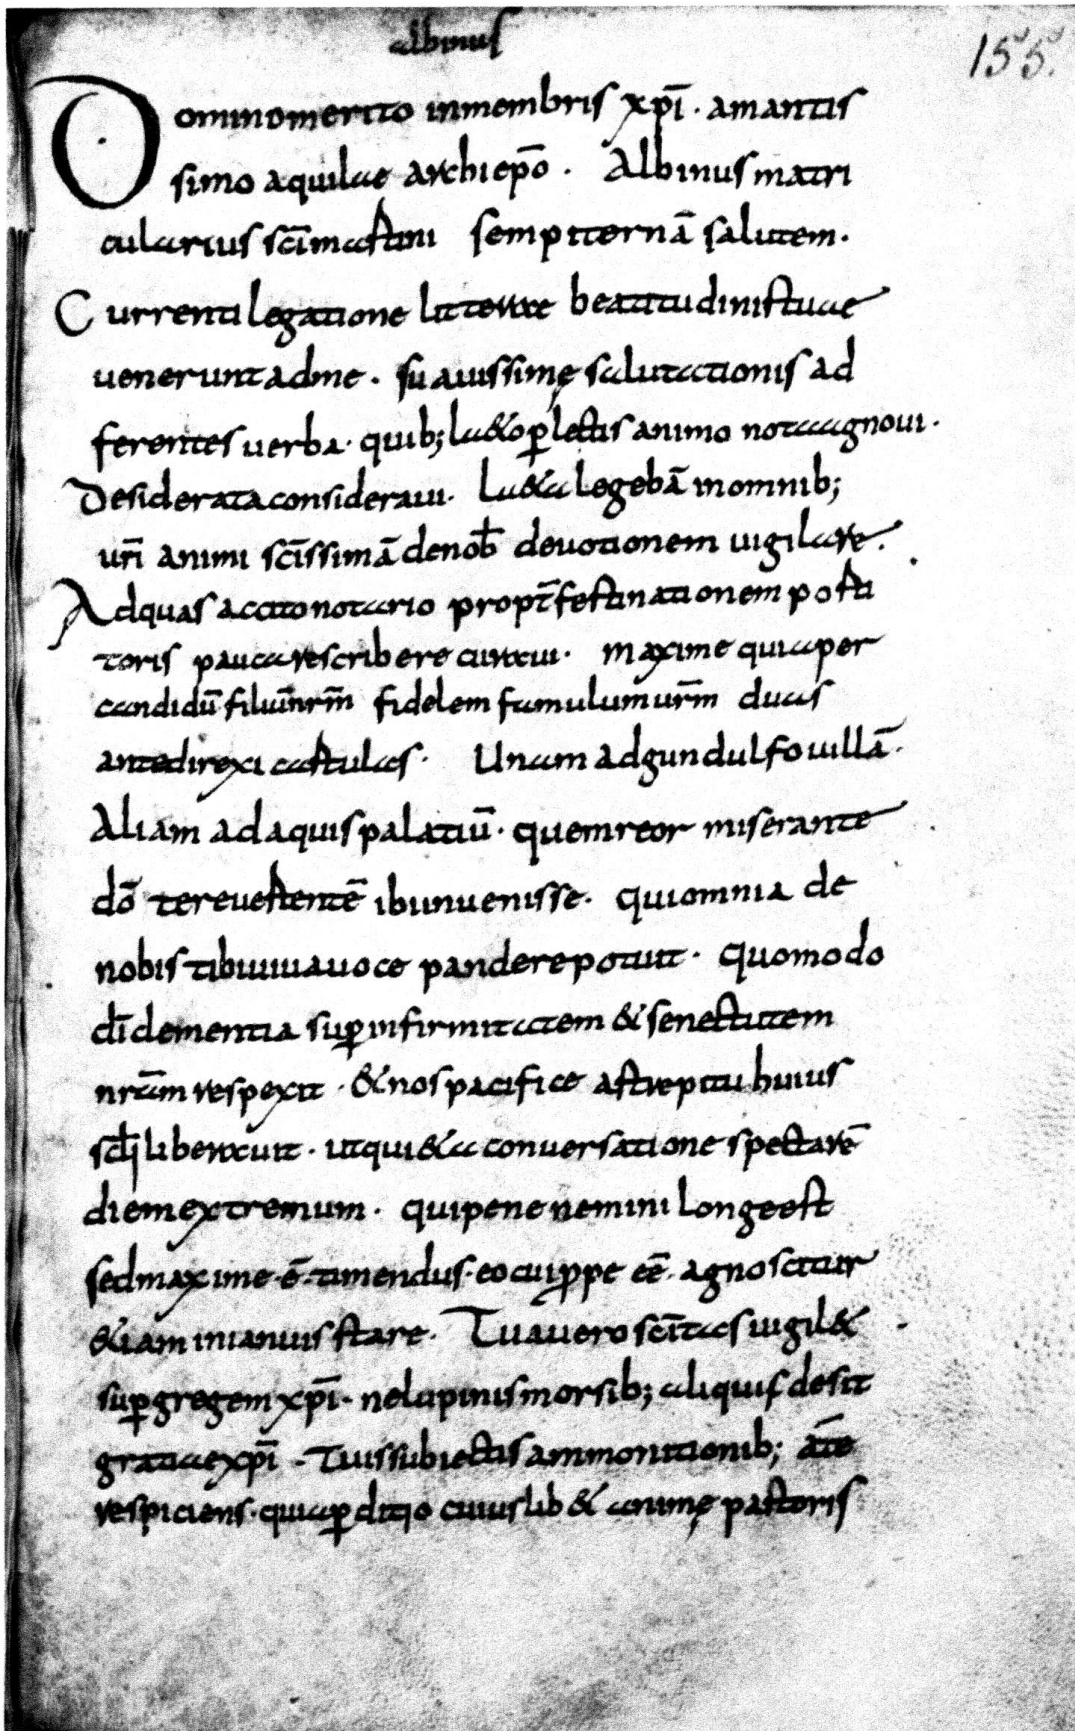 albinus
155.
Domino merito in membris xp̄i · amantis
simo aquilae archiep̄o · Albinus matri
cularius sc̄i mastini sempiternā salutem ·
Currenti legatione litterae beatitudinis tuae
uenerunt ad me · suauissimę salutationis ad
ferentes uerba · quib; laeto p̲lectis animo nota agnoui ·
Desiderata consideraui · laeta legebā in omnib;
ur̄i animi sc̄issimā de nob̄ deuotionem uigilare ·
Ad quas accito notario propt̄ festinationem posti
toris pauca rescribere curaui · maxime quia per
candidū filiūnr̄m fidelem famulum ur̄m duas
ante direxi castulas · Unam ad gundulfo uillā ·
Aliam ad aquis palatiū · quem reor miserante
dō te reuestentē ibi inuenisse · qui omnia de
nobis tibi uiua uoce pandere potuit · quomodo
dī clementia sup̲ infirmitatem & senectutem
nrām respexit · & nos pacifice a strepitu huius
scl̄i liberauit · ut qui&a conuersatione spectarē
diem extremum · qui pene nemini longe est
sed maxime · ē · timendus · eo cui p̲pe eē · agnoscitur
&iam in ianuis stare · Tua uero sc̄itas uigil&
sup̲ gregem xp̄i · ne lupinis morsib; aliquis desit
gratiae xp̄i · Tuis subiectis ammonitionib; a te
respiciens · quia p̲ditio cuiuslib& animę pastoris